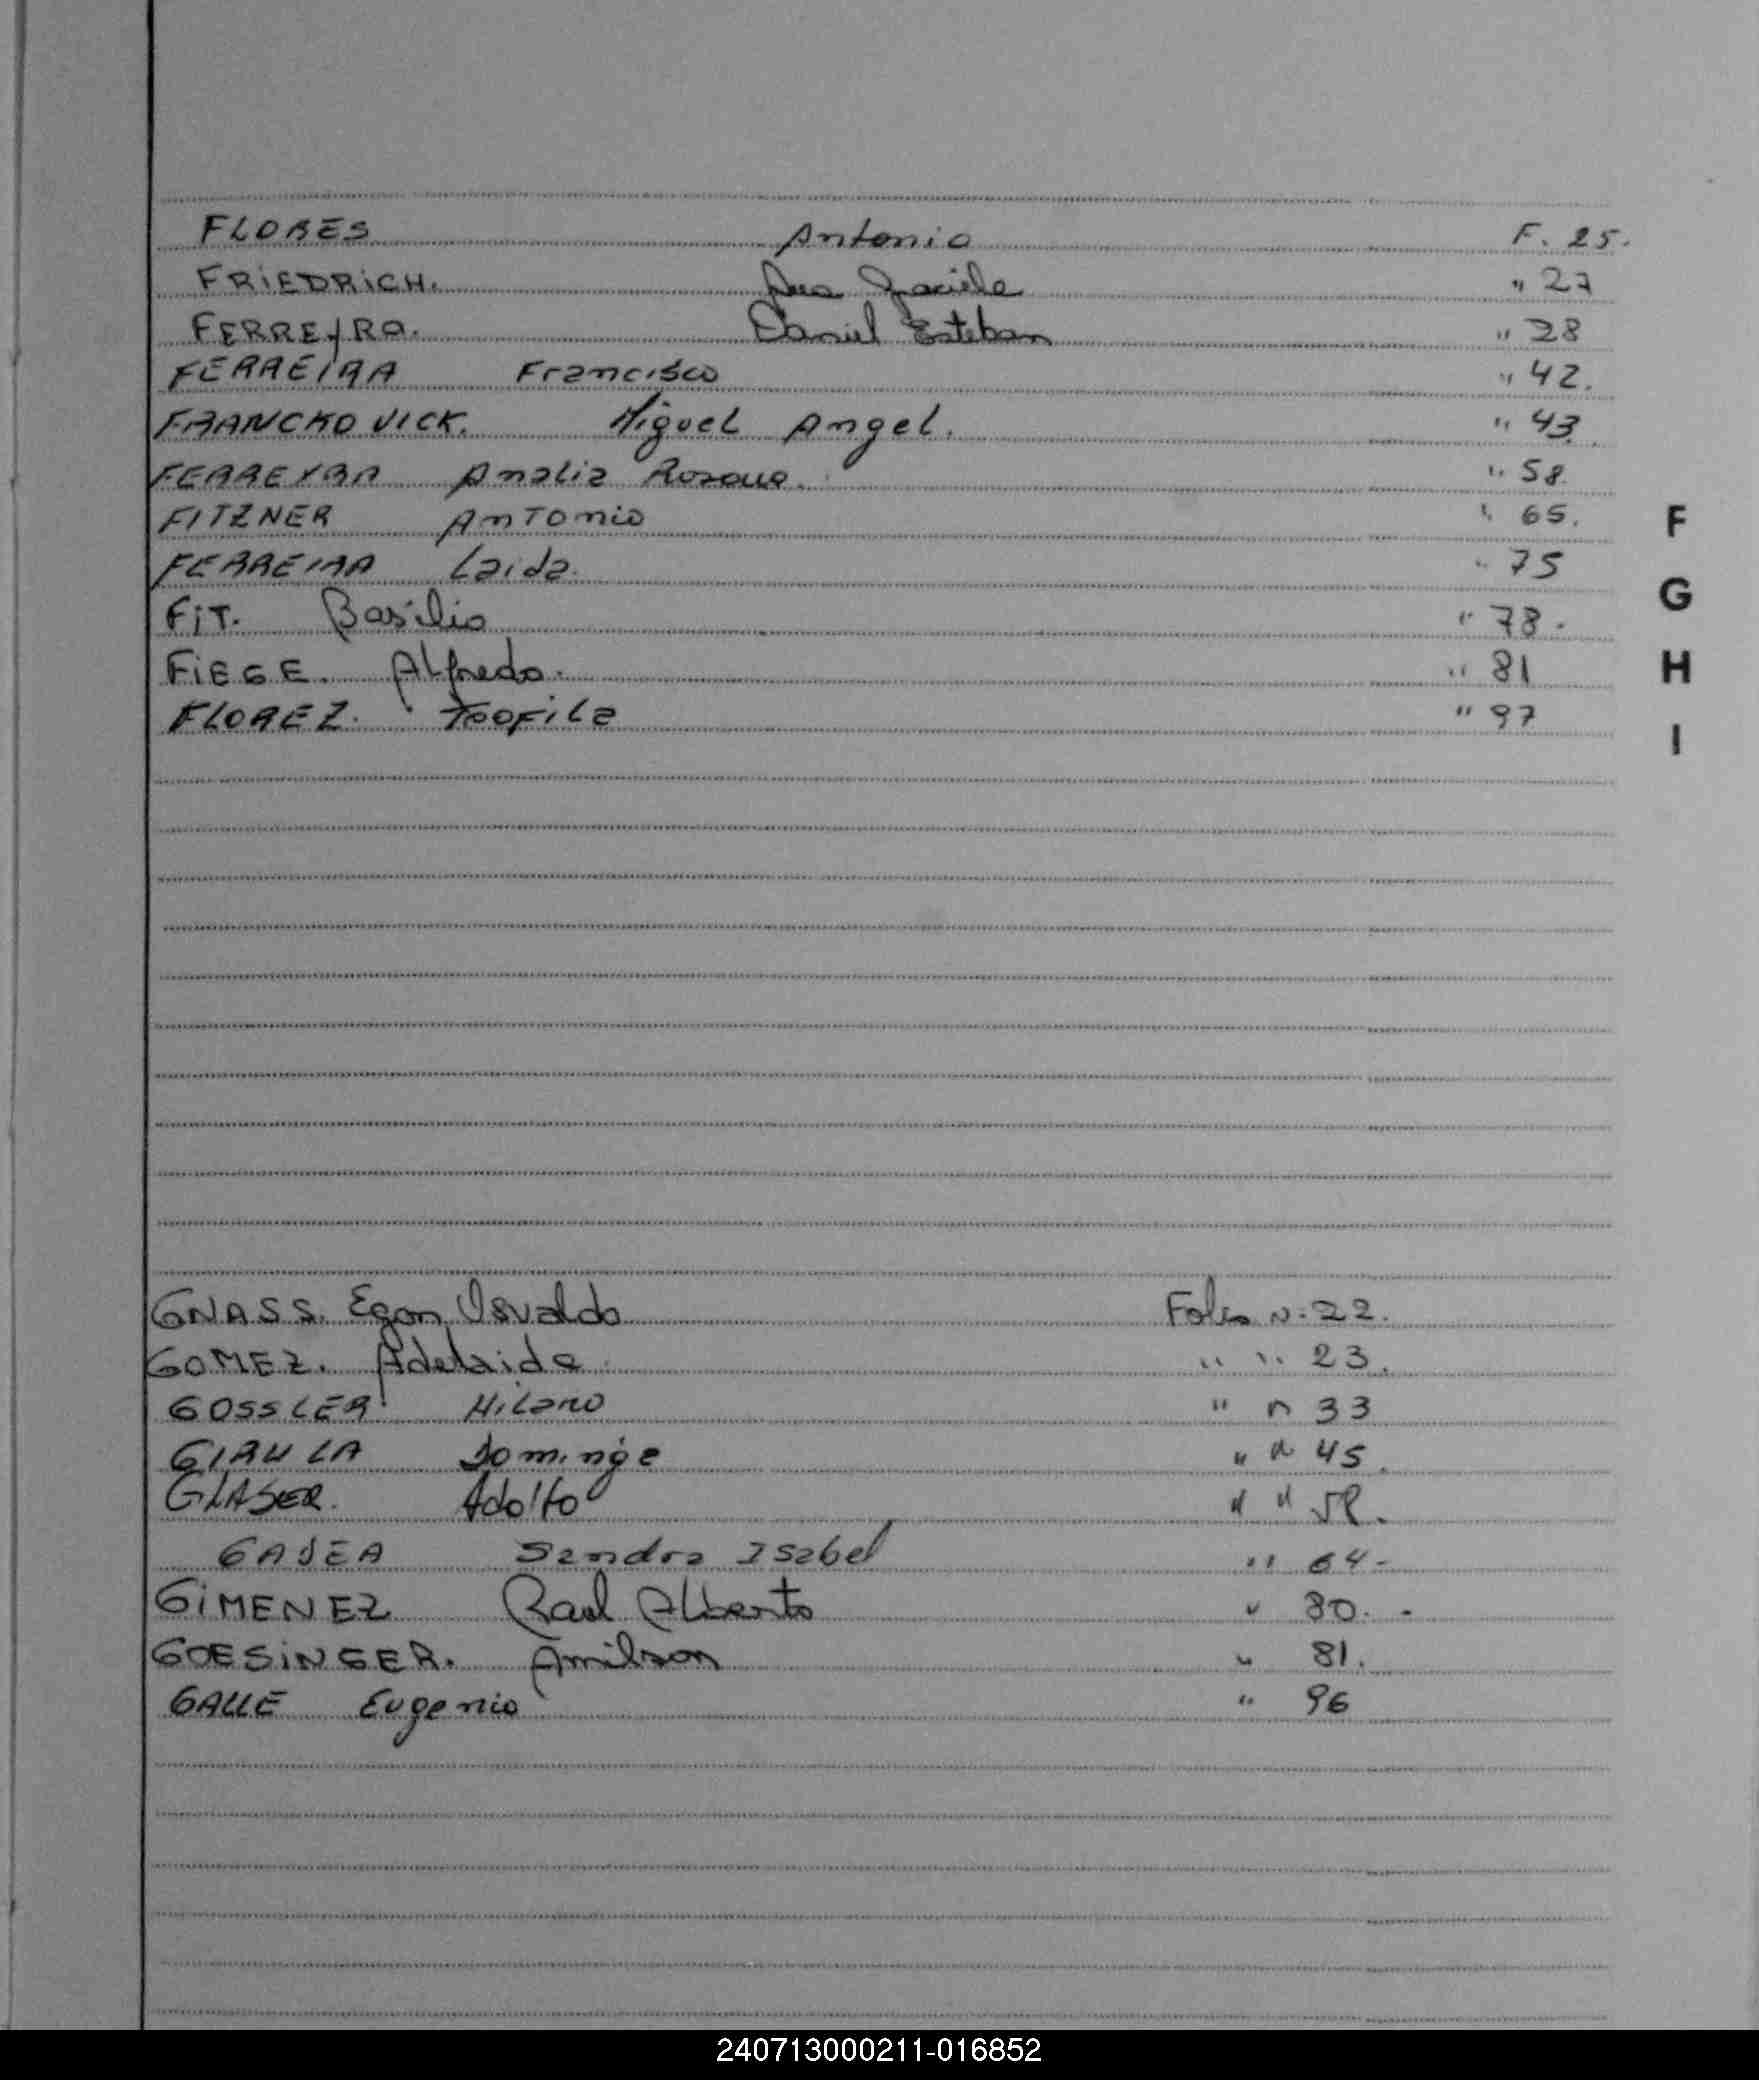 FLORES Antonio F. 25.
FRIEDRICH. Ana Graciela " 27
FERREYRA. Daniel Esteban " 28
FERREIRA Francisco " 42.
FRANCKOVICK. Miguel Angel. " 43.
FERREYRA Analia " 58.
FITZNER Antonio " 65.
FERREIRA Laida. " 75
FIT. Basilio " 78.
FIEGE. Alfredo. " 81
FLOREZ. Teofila " 97
F
G
H
I
GNASS. Egon Osvaldo Folio N. 22.
GOMEZ. Adelaida " " 23.
GOSSLER Hilario " " 33
GIRULA Dominga " " 45.
GLASER. Adolfo " "
Sandra Isabel " 64-
GIMENEZ Raul Alberto " 80.
GOESINGER. Amilson " 81.
GALLE Eugenio " 96
240713000211-016852